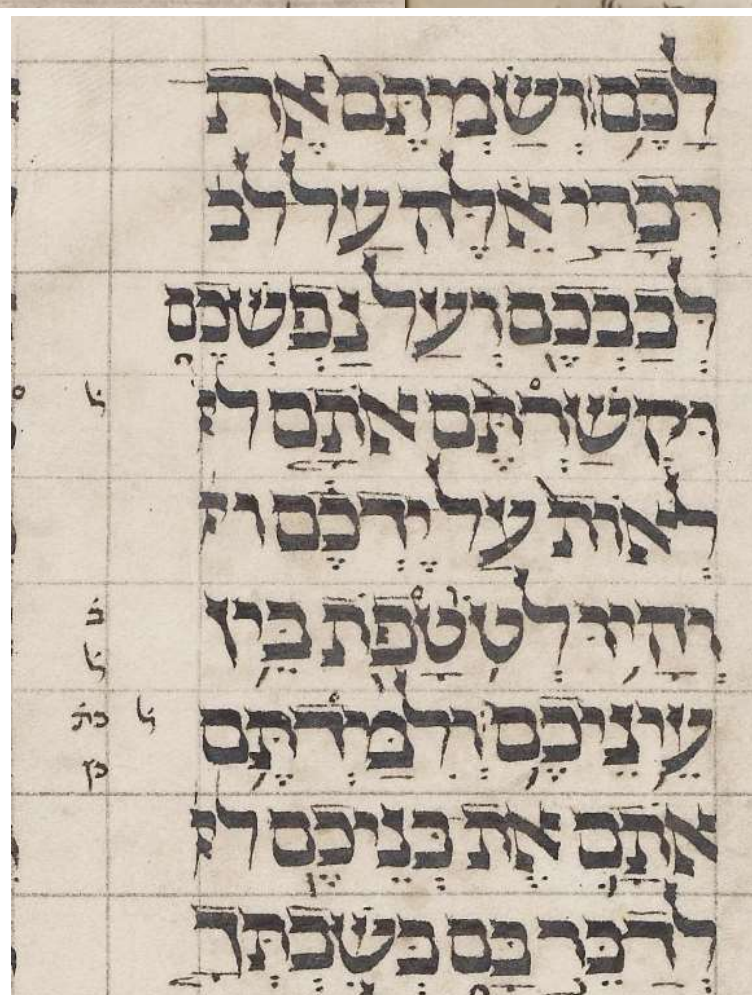 לכם ושמתם את
דברי אלה על לב
לבבכם ועל נפשכם
וקשרתם אתם ל
ל
לאות על ידכם ו
והיו לטטפת בין
ב
ל
עיניכם ולמדתם
ל כת
כן
אתם את בניכם ל
לדבר בם בשבתך